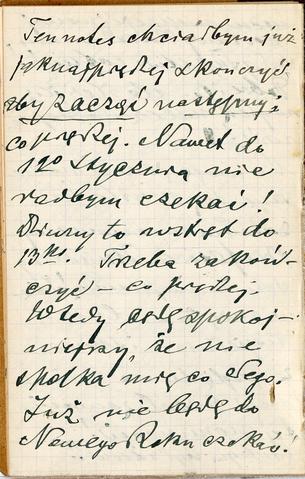 Ten notes chciałbym już
jaknajprędzej skończyć
aby zacząć następny,
co prędzej. Nawet do
1go Stycznia nie
radbym czekać!
Dziwny to wstręt do
13ki. Trzeba zakoń-
czyć – co prędzej.
Wtedy będę spokoj-
niejszy, że nie
spotka mię co złego.
Już nie będę do
Nowego Roku czekać!